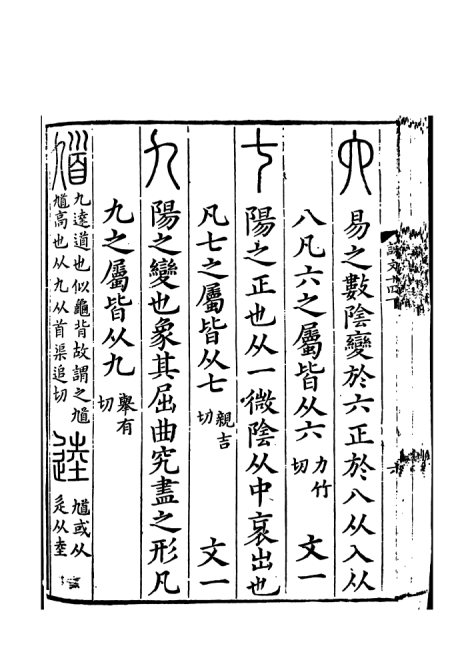 說文十四
六 易之數陰變於六正於八从入从
八凡六之屬皆从六 力竹切 文一
七 陽之正也从一微陰从中衺出也
凡七之屬皆从七 親吉切 文一
九 陽之變也象其屈曲究盡之形凡
九之屬皆从九 舉有切
馗 九達道也似龜背故謂之馗
馗高也从九从首渠追切
逵 馗或从
辵从坴